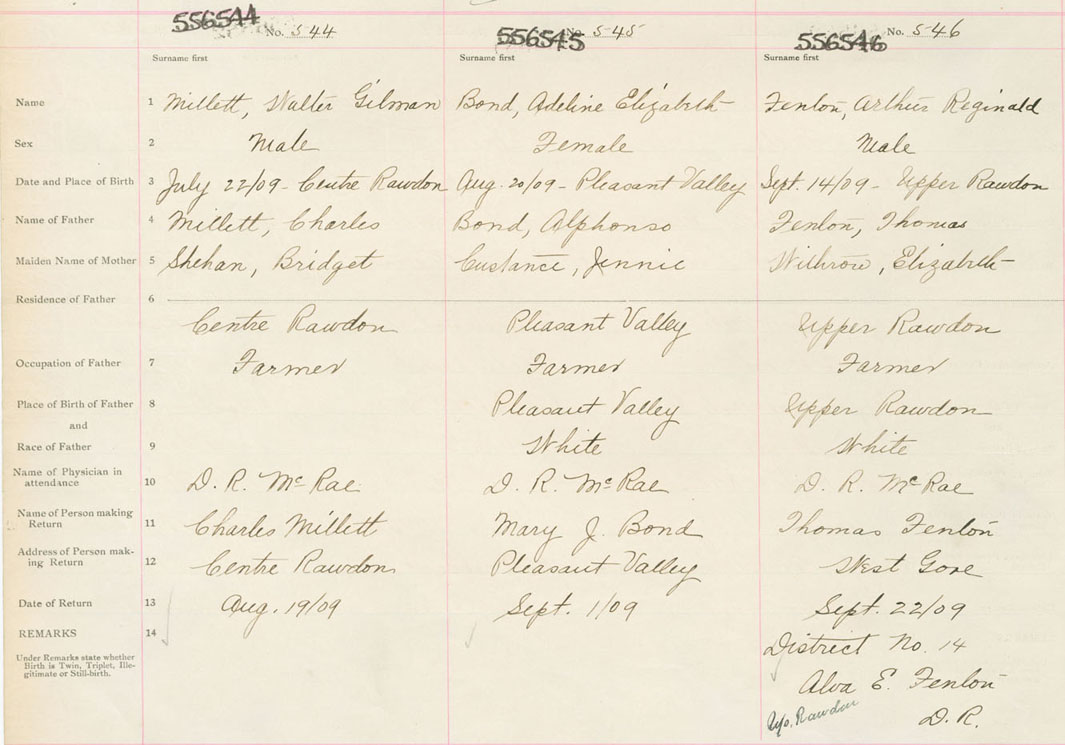 556544 No. 544 556545 No. 545 556546 No. 546
Surname first Surname first Surname first
Name 1 Millett, Walter Gilman Bond, Adeline Elizabeth Fenlon, Arthur Reginald
Sex 2 Male Female Male
Date and Place of Birth 3 July 22/09 - Centre Rawdon Aug. 20/09 - Pleasant Valley Sept. 14/09 - Upper Rawdon
Name of Father 4 Millett, Charles Bond, Alphonso Fenlon, Thomas
Maiden Name of Mother 5 Shehan, Bridget Custance, Jennie Withrow, Elizabeth
Residence of Father 6
Centre Rawdon Pleasant Valley Upper Rawdon
Occupation of Father 7 Farmer Farmer Farmer
Place of Birth of Father 8 Pleasant Valley Upper Rawdon
and
Race of Father 9 White White
Name of Physician in
attendance 10 D. R. McRae D. R. McRae D. R. McRae
Name of Person making
Return 11 Charles Millett Mary J. Bond Thomas Fenlon
Address of Person mak-
ing Return 12 Centre Rawdon Pleasant Valley West Gore
Date of Return 13 Aug. 19/09 Sept. 1/09 Sept. 22/09
REMARKS 14 District No. 14
Under Remarks state whether
Birth is Twin, Triplet, Ille-
gitimate or Still-birth.
Alva E. Fenlon
Up. Rawdon D. R.